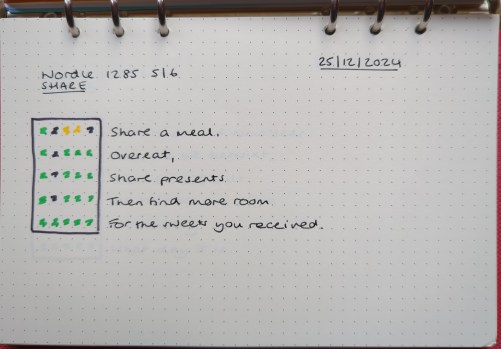 25/12/2024
Wordle 1285 5/6
SHARE
Share a meal.
Overeat,
Share presents
Then find more room
For the sweets you received.